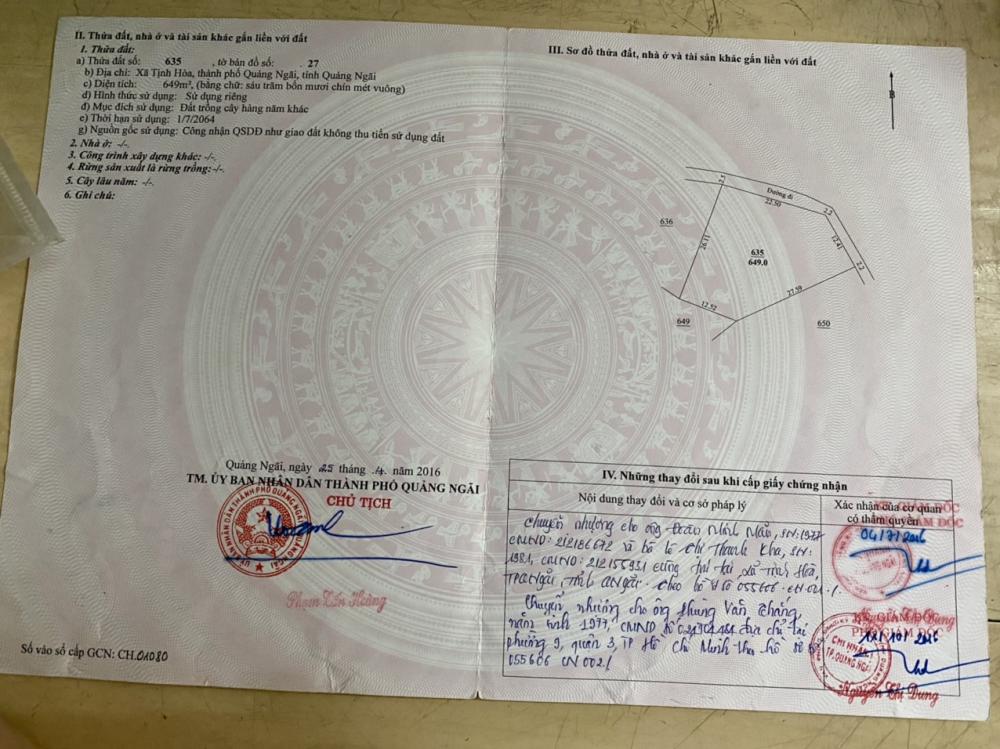 II. Thửa đất, nhà ở và tài sản khác gắn liền với đất
1. Thửa đất:
a) Thửa đất số: 635 , tờ bản đồ số: 27
b) Địa chỉ: Xã Tịnh Hòa, thành phố Quảng Ngãi, tỉnh Quảng Ngãi
c) Diện tích: 649m², (bằng chữ: sáu trăm bốn mươi chín mét vuông)
d) Hình thức sử dụng: Sử dụng riêng
đ) Mục đích sử dụng: Đất trồng cây hàng năm khác
e) Thời hạn sử dụng: 1/7/2064
g) Nguồn gốc sử dụng: Công nhận QSDĐ như giao đất không thu tiền sử dụng đất
2. Nhà ở: -/-.
3. Công trình xây dựng khác: -/-.
4. Rừng sản xuất là rừng trồng:-/-.
5. Cây lâu năm: -/-.
6. Ghi chú:
Quảng Ngãi, ngày 25 tháng .4. năm 2016
TM. ỦY BAN NHÂN DÂN THÀNH PHỐ QUẢNG NGÃI
CHỦ TỊCH
Phạm Tấn Hoàng
Số vào sổ cấp GCN: CH.01080
III. Sơ đồ thửa đất, nhà ở và tài sản khác gắn liền với đất
B
Đường đi
2.5
22.50
2.2
12.41
2.2
636
26.11
635
649.0
27.59
12.52
649
650
IV. Những thay đổi sau khi cấp giấy chứng nhận
Nội dung thay đổi và cơ sở pháp lý
Xác nhận của cơ quan
có thẩm quyền
Chuyển nhượng cho ông Minh SN:1977
CMND: 212186672 và bà Chi Thanh Kha, SN:
1981, CMND: 212155931 cùng tại xã Tịnh Hòa,
TP.QNgãi, Tỉnh QNgãi. theo hồ sơ 055606.
Chuyển nhượng cho ông Văn Thắng,
năm sinh 1977, CMND số địa chỉ tại
phường 9, quận 3, TP Hồ Chí Minh theo hồ sơ
055606 CN 002/
PHÓ GIÁM ĐỐC
CHI NHÁNH
TP.QUẢNG NGÃI
Nguyễn Thị Dung